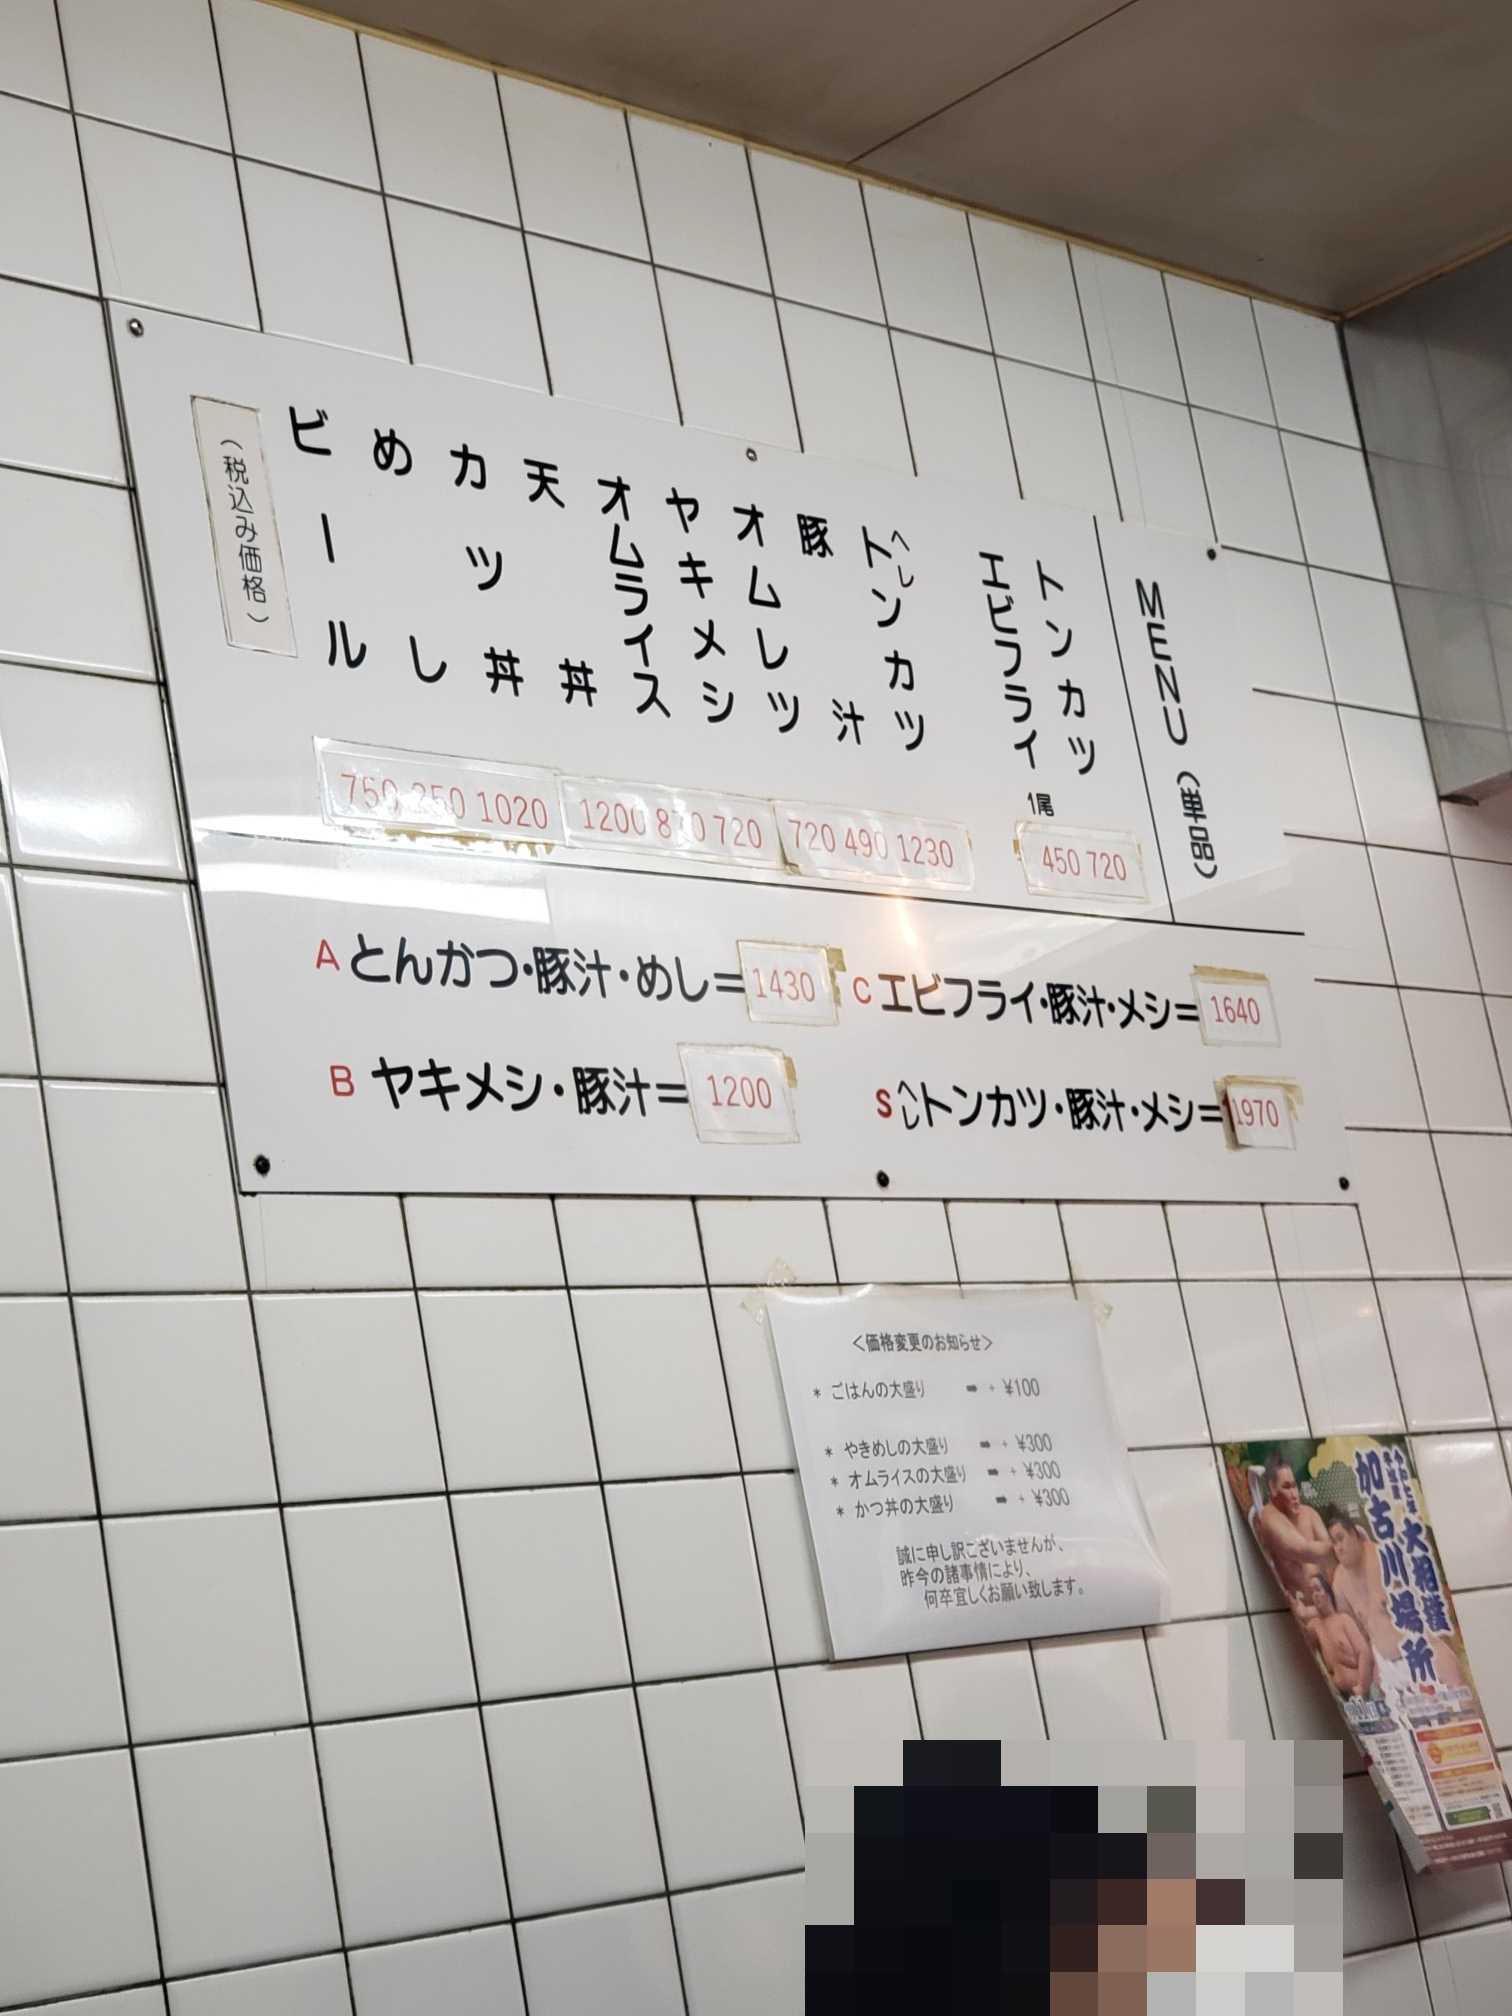 MENU（単品）
トンカツ 720
エビフライ 1尾 450
ヘレトンカツ 1230
豚汁 490
オムレツ 720
ヤキメシ 720
オムライス 870
天丼 1200
カツ丼 1020
めし 250
ビール 750
（税込み価格）
A とんかつ・豚汁・めし＝1430
B ヤキメシ・豚汁＝1200
C エビフライ・豚汁・メシ＝1640
S ヘレトンカツ・豚汁・メシ＝1970
＜価格変更のお知らせ＞
* ごはんの大盛り ➡ + ¥100
* やきめしの大盛り ➡ + ¥300
* オムライスの大盛り ➡ + ¥300
* かつ丼の大盛り ➡ + ¥300
誠に申し訳ございませんが、
昨今の諸事情により、
何卒宜しくお願い致します。
大相撲
加古川場所